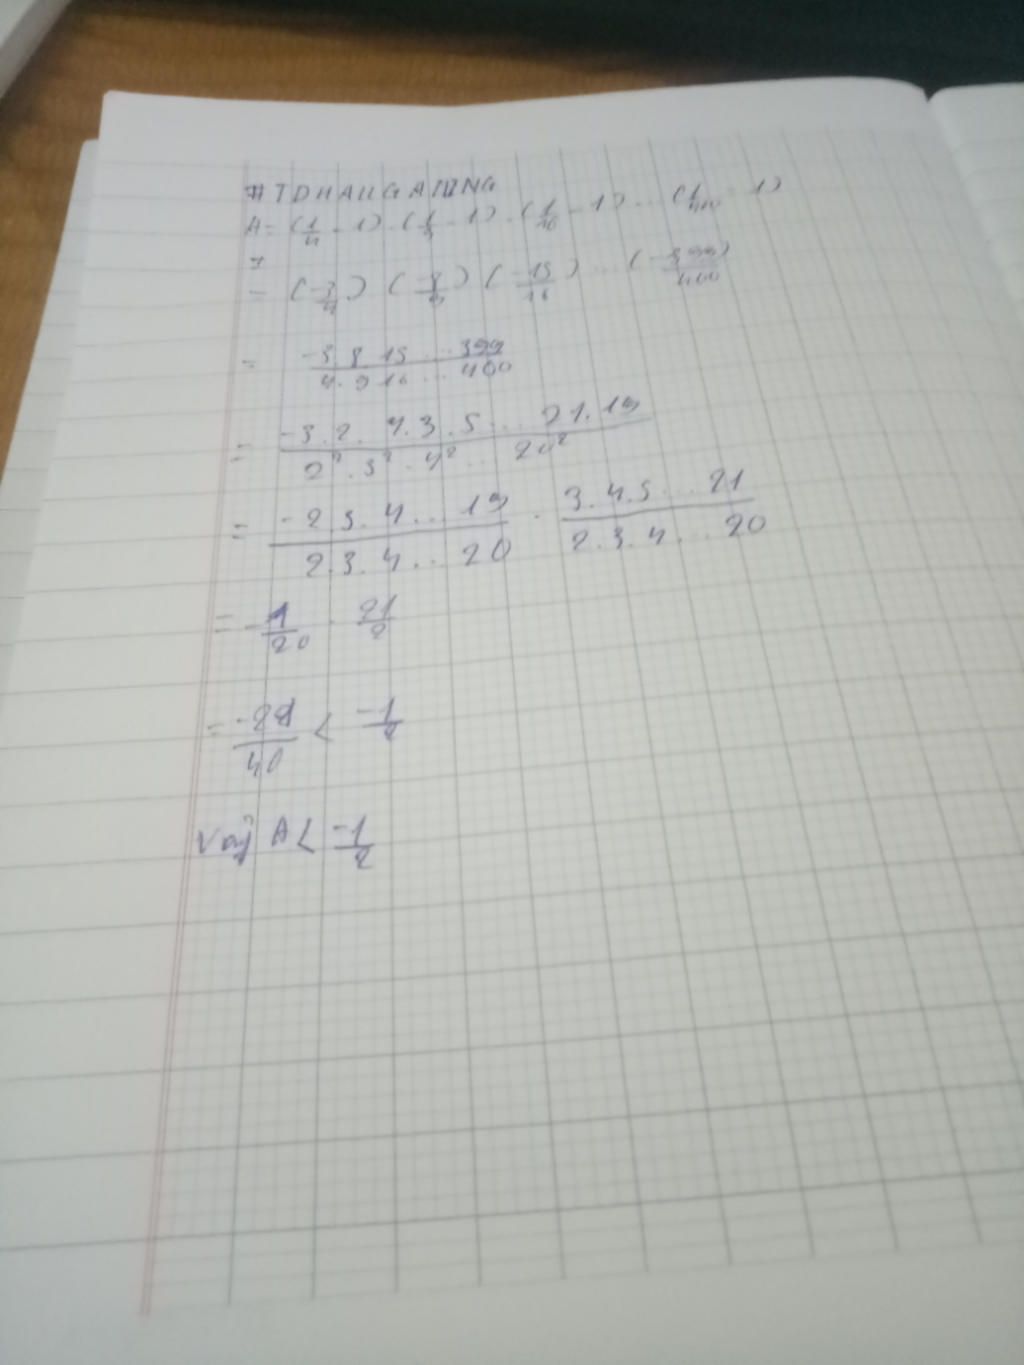 #TDHAHGAMING
A = (1/4 - 1) . (1/9 - 1) . (1/16 - 1) ... (1/400 - 1)
= (-3/4) (-8/9) (-15/16) ... (-399/400)
= -3.8.15...399 / 4.9.16...400
= -3.2.4.3.5...21.19 / 2².3².4²...20²
= -2.3.4...19 / 2.3.4...20 . 3.4.5...21 / 2.3.4...20
= -1/20 . 21/2
= -21/40 < -1/2
Vậy A < -1/2